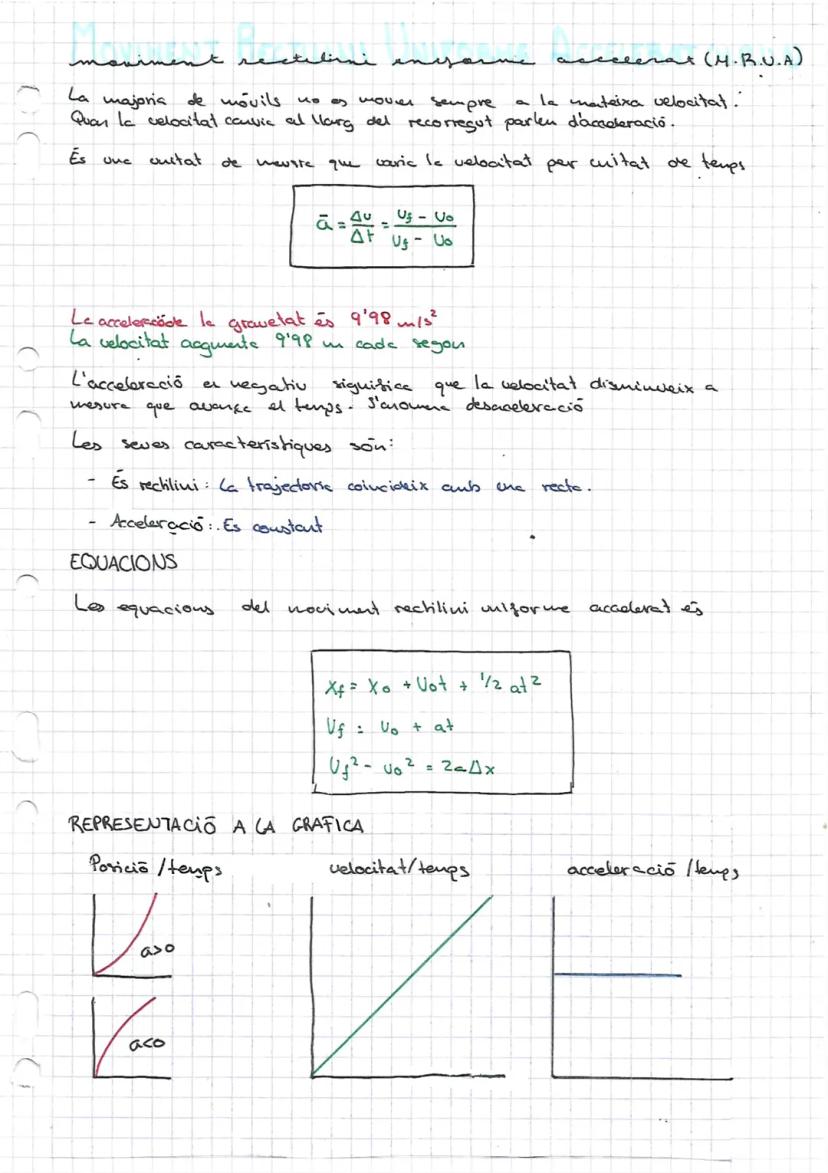 MOVIMENT RECTILINI UNIFORME ACCELERAT
moviment rectilini uniforme accelerat (M.R.U.A)
La majoria de móvils no es mouen sempre a la mateixa velocitat.
Quan la velocitat canvia al llarg del recorregut parlem d'acceleració.
És una unitat de mesura que varia la velocitat per unitat de temps
ā = Δv/Δt = (Vf - Vo)/(Vf - Vo)
La acceleracióde la gravetat és 9'98 m/s²
La velocitat augmenta 9'98 m cada segon
L'acceleració en negatiu significa que la velocitat disminueix a
mesura que avança el temps. S'anomena desacceleració
Les seves característiques són:
- És rectilini: La trajectoria coincideix amb una recta.
- Acceleració: Es constant
EQUACIONS
Les equacions del moviment rectilini uniforme accelerat és
Xf = Xo + Vot + 1/2 at²
Vf = Vo + at
Vf² - Vo² = 2aΔx
REPRESENTACIÓ A LA GRAFICA
Posició /temps velocitat/temps acceleració /temps
a>0
a<0